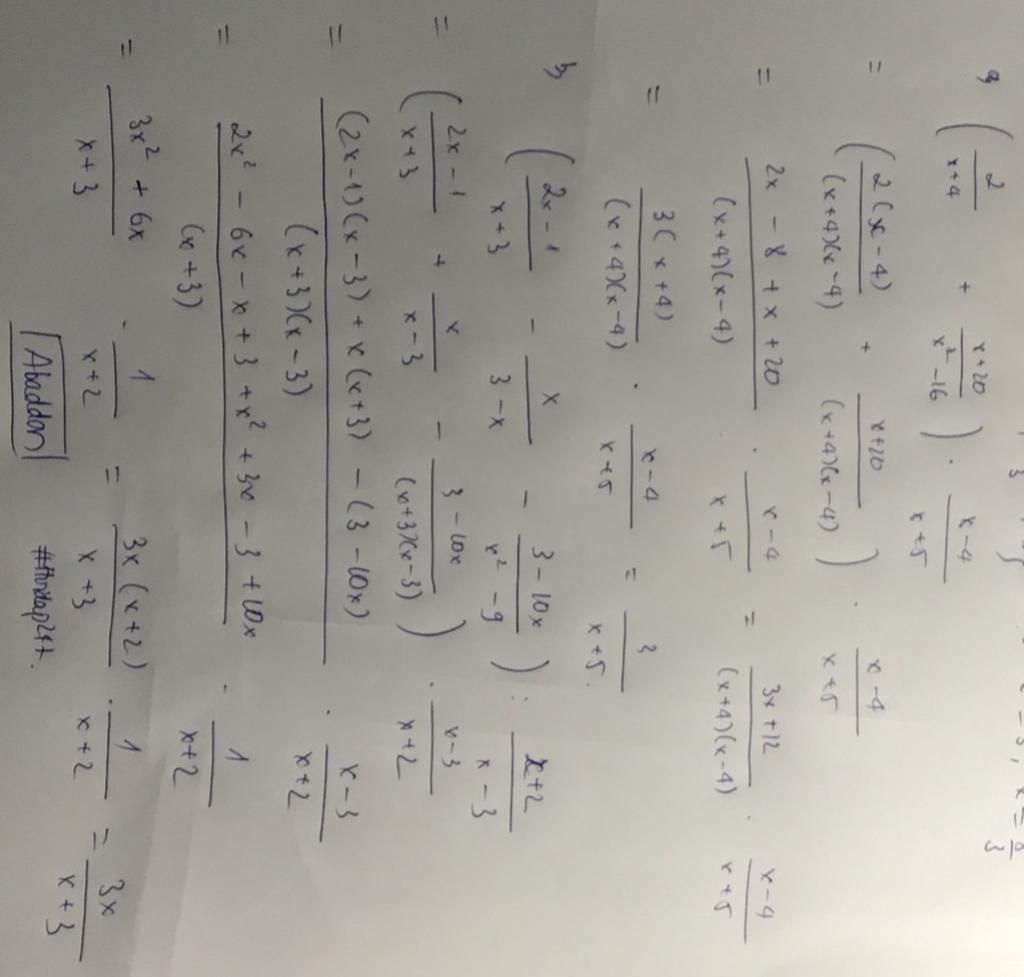 a, (2/(x+4) + (x+20)/(x²-16)) . (x-4)/(x+5)
= (2(x-4)/((x+4)(x-4)) + (x+20)/((x+4)(x-4))) . (x-4)/(x+5)
= (2x - 8 + x + 20)/((x+4)(x-4)) . (x-4)/(x+5) = (3x+12)/((x+4)(x-4)) . (x-4)/(x+5)
= 3(x+4)/((x+4)(x-4)) . (x-4)/(x+5) = 3/(x+5).
b, ((2x-1)/(x+3) - x/(3-x) - (3-10x)/(x²-9)) : (x+2)/(x-3)
= ((2x-1)/(x+3) + x/(x-3) - (3-10x)/((x+3)(x-3))) . (x-3)/(x+2)
= ((2x-1)(x-3) + x(x+3) - (3-10x))/((x+3)(x-3)) . (x-3)/(x+2)
= (2x² - 6x - x + 3 + x² + 3x - 3 + 10x)/(x+3) . 1/(x+2)
= (3x² + 6x)/(x+3) . 1/(x+2) = 3x(x+2)/(x+3) . 1/(x+2) = 3x/(x+3)
Abaddon